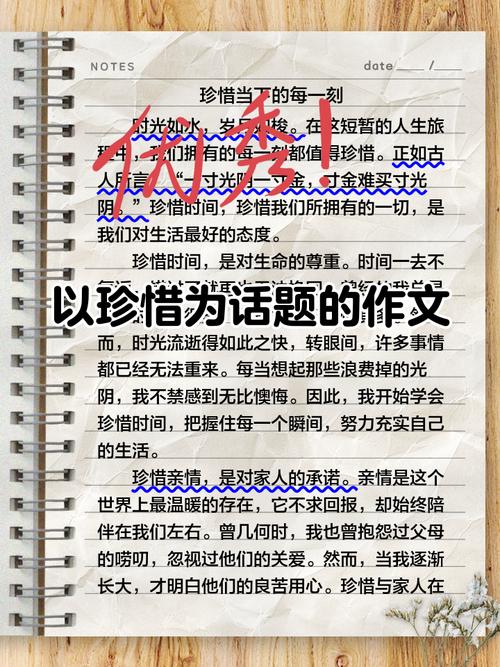 NOTES
date____/__
珍惜当下的每一刻
优秀！
时光如水，岁月如梭。在这短暂的人生旅
程中，我们拥有的每一刻都值得珍惜。正如古
人所言：“一寸光阴一寸金，寸金难买寸光
阴。”珍惜时间，珍惜我们所拥有的一切，是
我们对生活最好的态度。
珍惜时间，是对生命的尊重。时间一去不
以珍惜为话题的作文
而，时光流逝得如此之快，转眼间，许多事情
都已经无法重来。每当想起那些浪费掉的光
阴，我不禁感到无比懊悔。因此，我开始学会
珍惜时间，把握住每一个瞬间，努力充实自己
的生活。
珍惜亲情，是对家人的承诺。亲情是这个
世界上最温暖的存在，它不求回报，却始终陪
伴在我们左右。曾几何时，我也曾抱怨过父母
的唠叨，忽视过他们的关爱。然而，当我逐渐
长大，才明白他们的良苦用心。珍惜与家人在